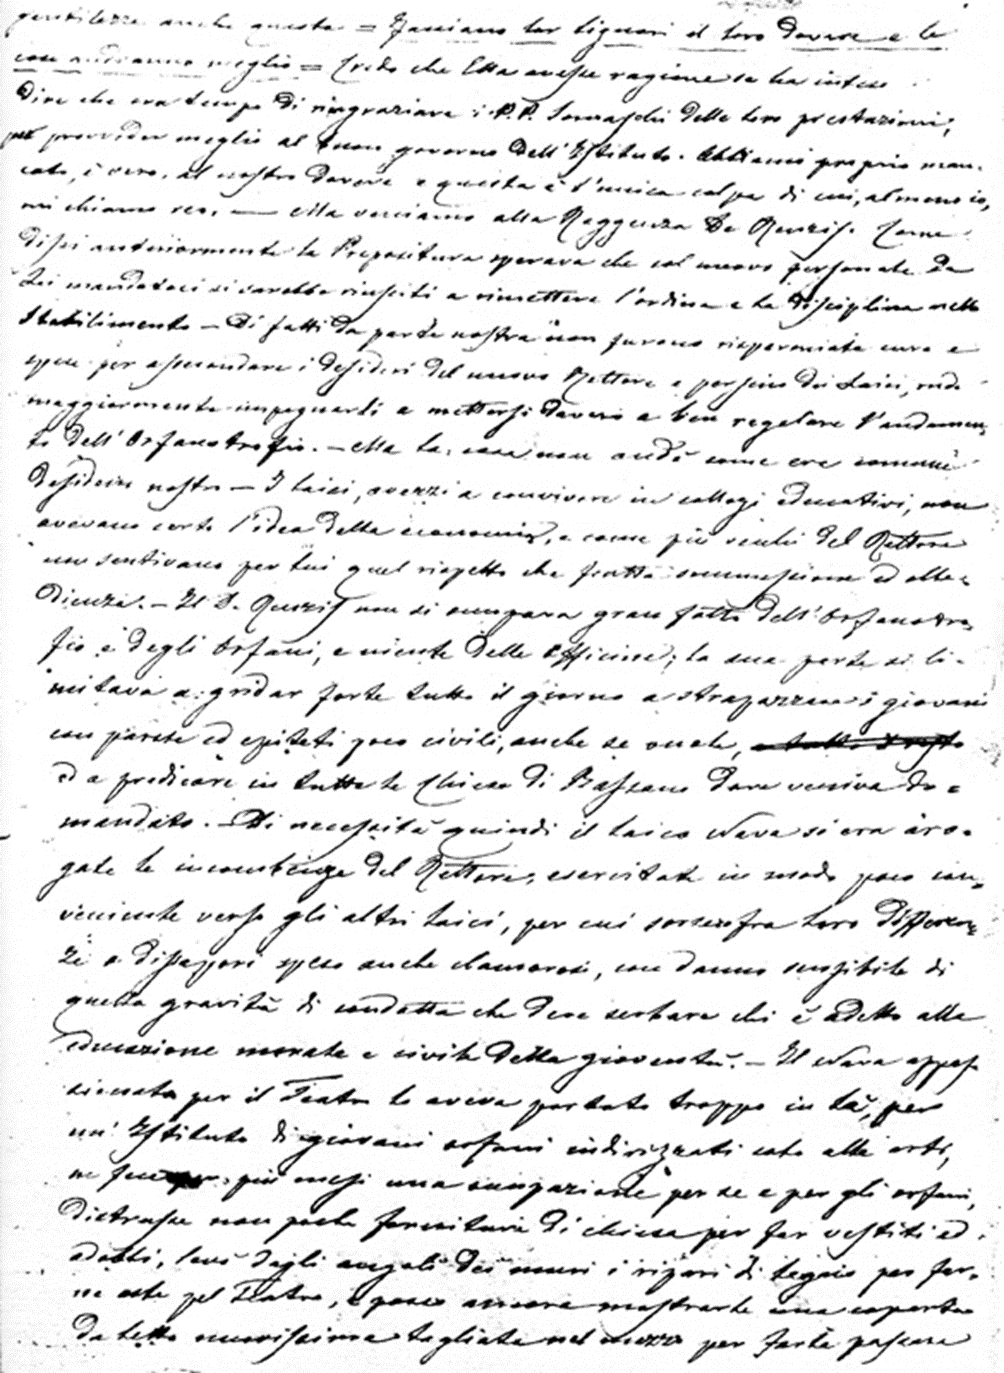 gentilezza anche questa = Facciano lor signori il loro dovere e le
cose andranno meglio = Credo che Ella avesse ragione se ha inteso
dire che era tempo di ringraziare i P.P. Somaschi delle loro prestazioni,
per provveder meglio al buon governo dell'Istituto. Abbiamo proprio man-
cato, è vero, al nostro dovere e questa è l'unica colpa di cui, almeno io,
mi chiamo reo. — Ma veniamo alla Reggenza De Renzis. Come
dissi anteriormente la Prepositura sperava che col nuovo personale da
Lei mandatoci si sarebbe riusciti a rimettere l'ordine e la disciplina nello
Stabilimento — Di fatti da parte nostra non furono risparmiate cure e
spese per assecondare i desideri del nuovo Rettore e persino dei Laici, onde
maggiormente impegnarli a mettersi davvero a ben regolare l'andamen-
to dell'Orfanotrofio. — Ma la cosa non andò come era comune
desiderio nostro — I laici, avezzi a convivere in collegi educativi, non
avevano certo l'idea della economia, e come più vecchi del Rettore
non sentivano per lui quel rispetto che frutta sommessione ed obbe-
dienza. — Il De Renzis non si occupava gran fatto dell'Orfanotro-
fio e degli Orfani, e niente delle Officine; la sua parte si li-
mitava a gridar forte tutto il giorno a strapazzare i giovani
con parole ed epiteti poco civili, anche se vuole,
ed a predicare in tutte le Chiese di Bassano dove veniva do-
mandato. — Di necessità quindi il laico Nava si era aro-
gate le incombenze del Rettore, esercitate in modo poco con-
veniente verso gli altri laici, per cui sorsero fra loro differen-
ze e dissapori spesso anche clamorosi, con danno sensibile di
quella gravità di condotta che deve serbare chi è adetto alla
educazione morale e civile della gioventù. — Il Nava appas-
sionato per il Teatro lo aveva portato troppo in là, per
un' Istituto di giovani orfani indirizzati solo alle arti,
ne fece per più mesi una occupazione per se e per gli orfani,
distrasse non poche forniture di chiesa per far vestiti ed
adobbi, levò dagli angoli dei muri i ripari di legno per far-
ne aste pel Teatro, e posso ancora mostrarle una coperta
da letto nuovissima tagliata nel mezzo per farla passare